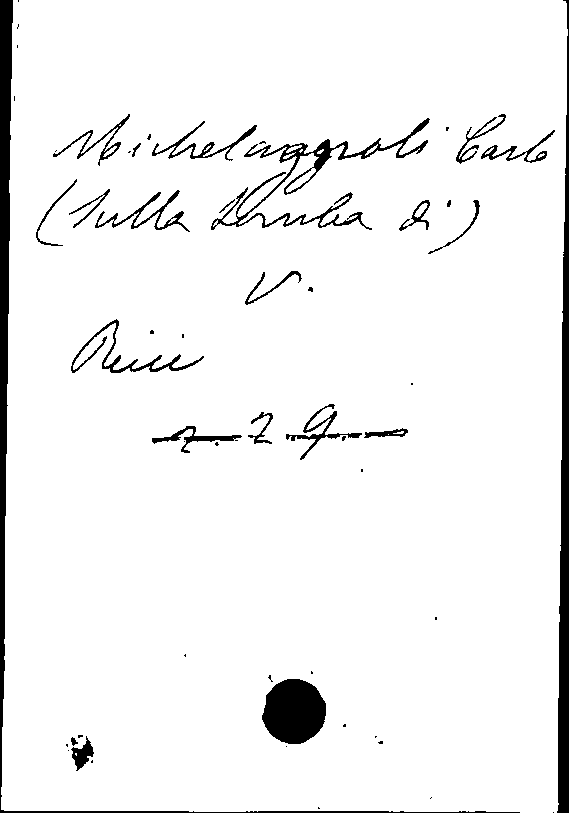 Michelaggnoli Carlo
(Sulla tomba di)
V.
Ricci
z. 29